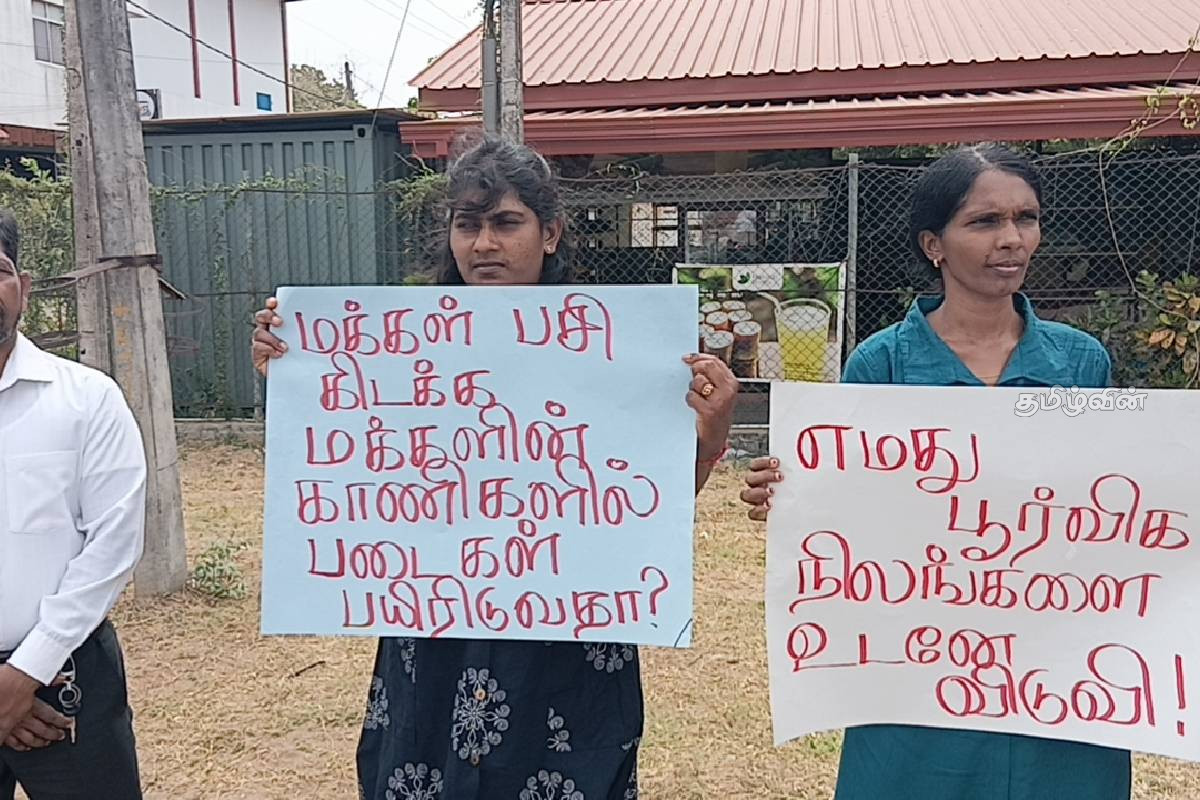 மக்கள் பசி
கிடக்க
மக்களின்
காணிகளில்
படைகள்
பயிரிடுவதா?
தமிழ்வின்
எமது
பூர்விக
நிலங்களை
உடனே
விடுவி!